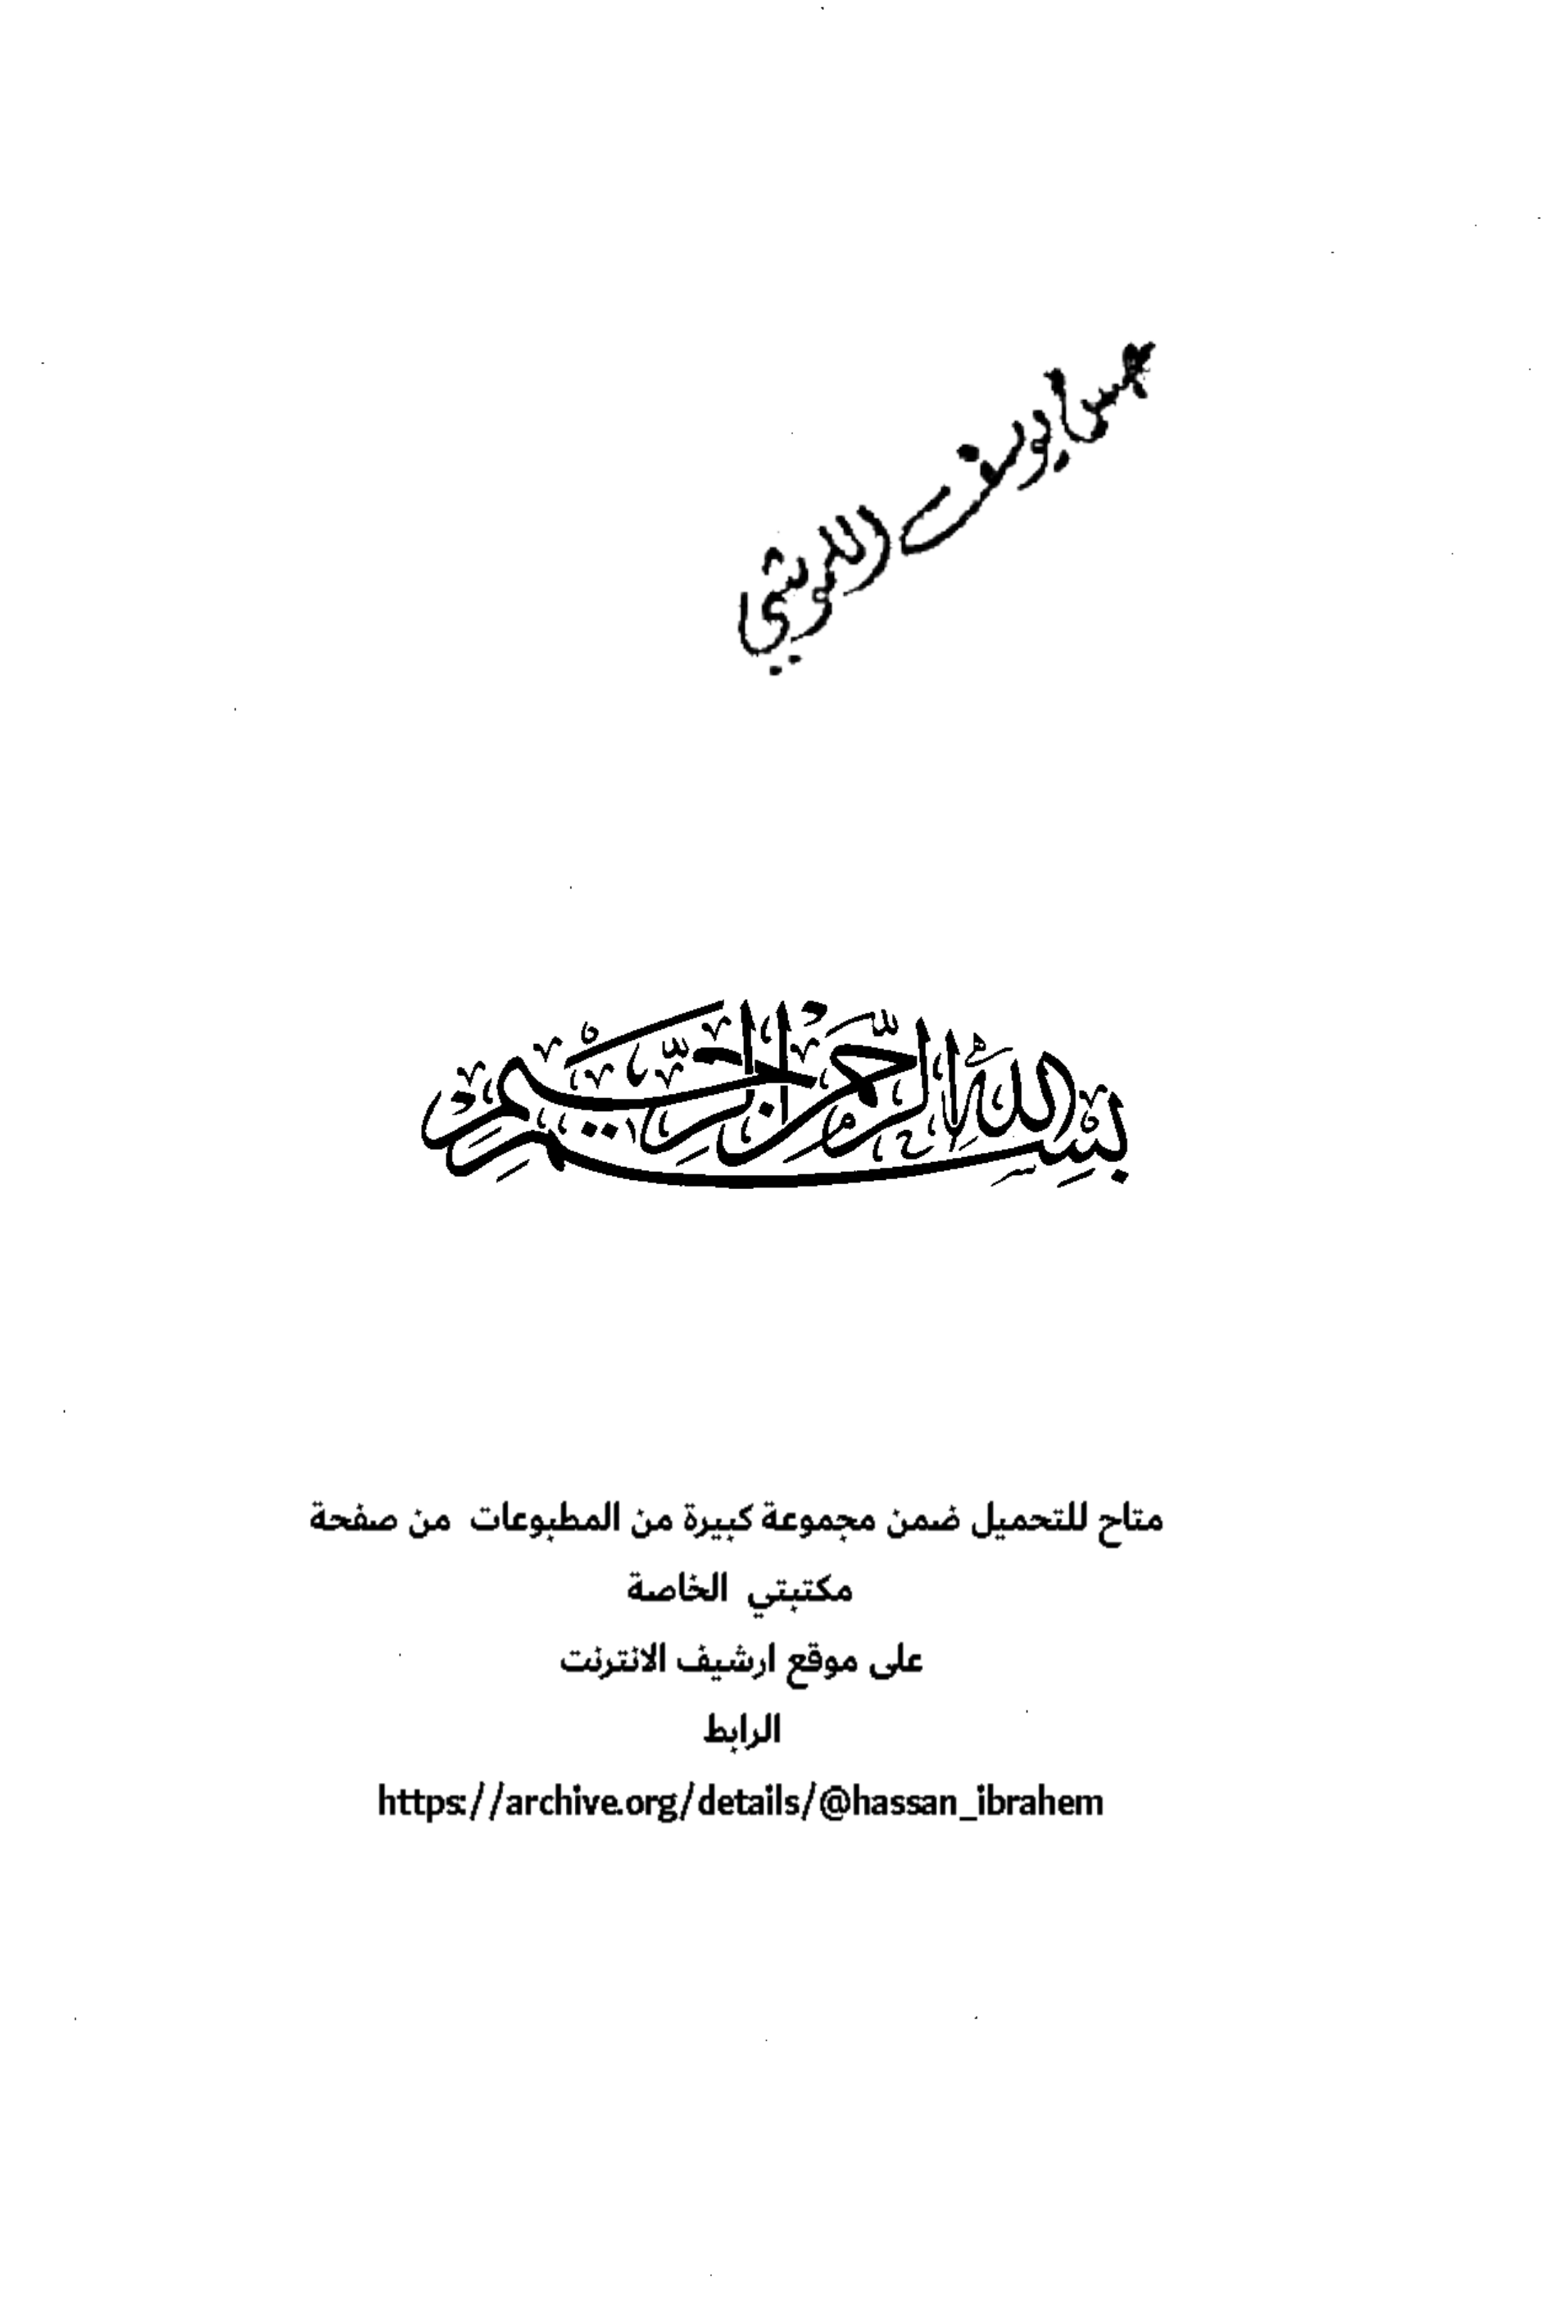 يوسف
بسم الله الرحمن الرحيم
متاح للتحميل ضمن مجموعة كبيرة من المطبوعات من صفحة
مكتبتي الخاصة
على موقع ارشيف الانترنت
الرابط
https://archive.org/details/@hassan_ibrahem